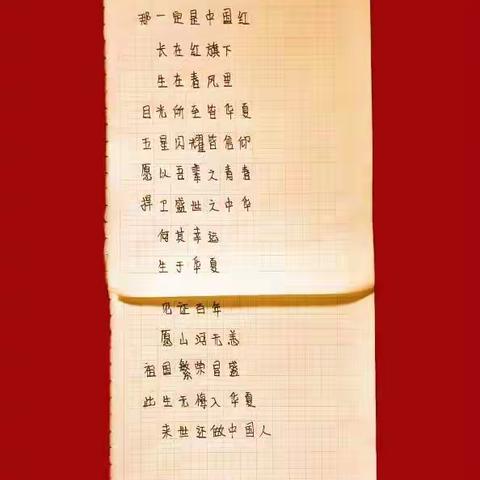 那一定是中国红
长在红旗下
生在春风里
目光所至皆华夏
五星闪耀皆信仰
愿以吾辈之青春
捍卫盛世之中华
何其幸运
生于华夏
见证百年
愿山河无恙
祖国繁荣昌盛
此生无悔入华夏
来世还做中国人